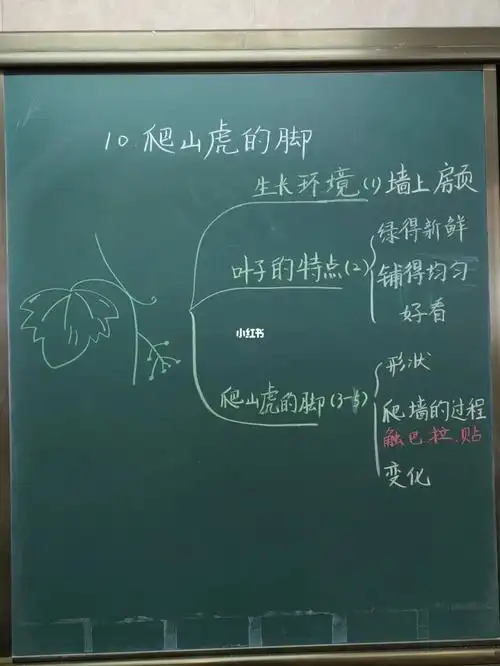 10.爬山虎的脚
生长环境(1) 墙上 房顶
叶子的特点(2)
绿得新鲜
铺得均匀
好看
小红书
爬山虎的脚(3-5)
形状
爬墙的过程
触 巴 拉 贴
变化